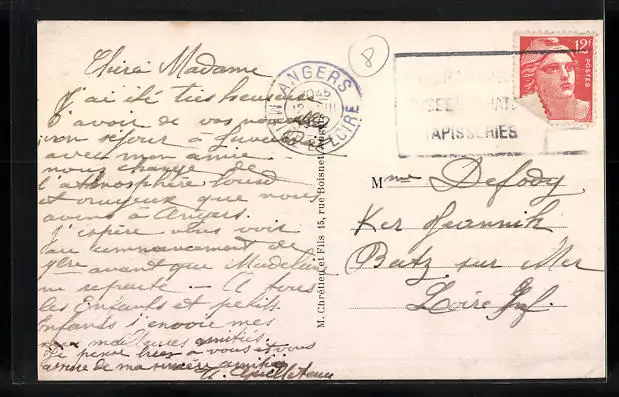 Chère Madame
J'ai été très heureuse
d'avoir de vos nouvelles
mon séjour à
avec mon amie
nous change de
l'atmosphère lourd
et orageux que nous
avons à Angers.
J'espère vous voir
au commencement de
7bre avant que
ne reparte - A tous
les Enfants et petits
Enfants j'envoie mes
meilleures amitiés.
Je pense bien à vous et vous
assure de ma sincère amitié
M.
8
ANGERS
1045
MAINE ET LOIRE
TAPISSERIES
12F
POSTES
M. Chrétien et Fils 15, rue Boisnet Angers
Mme Defody
Ker Jeannik
Batz sur Mer
Loire Inf.